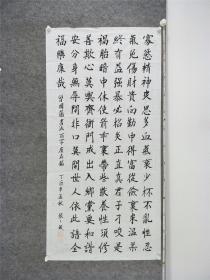 寡慾精神爽思多血氣衰少杯不亂性忍
氣免傷財貴向勤中得富從儉裏來温柔
終有益强暴必招灾正直真君子刁唆是
禍胎暗中休使箭乖裏養性須修
善欺心莫喫齋衙門戒出入鄉黨要和諧
安分身無辱閒非口莫開世人依此語全
福樂康哉 曾國藩書法百字座右銘 丁酉年孟秋